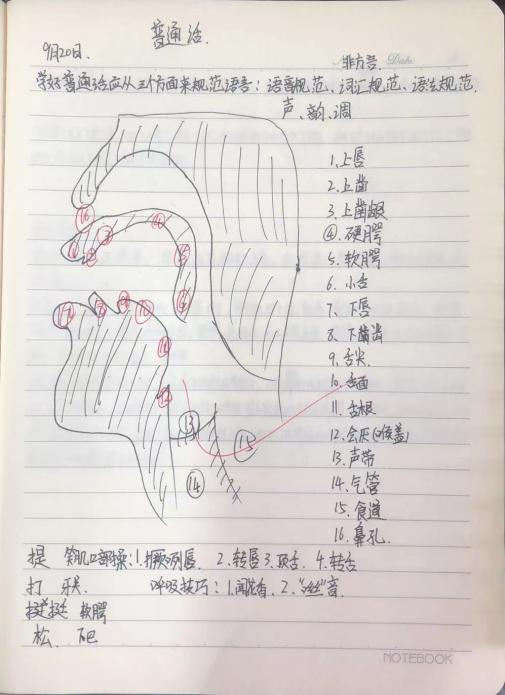 普通话.
9月20日.
非方言. Date.
学好普通话应从三个方面来规范语言：语音规范、词汇规范、语法规范.
声、韵、调
1.上唇
2.上齿
3.上齿龈
④.硬腭
5.软腭
6.小舌
7.下唇
8.下齿
9.舌尖.
10.舌面
11.舌根
12.会厌(喉盖)
13.声带
14.气管
15.食道
16.鼻孔.
16
1
2
3
4
5
6
7
8
9
10
11
12
13
14
15
提 笑肌 口部操：1. 唇 2.转唇 3.顶舌 4.转舌
打 牙关. 呼吸技巧：1.闻花香. 2."丝"音
挺 软腭
松. 下巴
NOTEBOOK